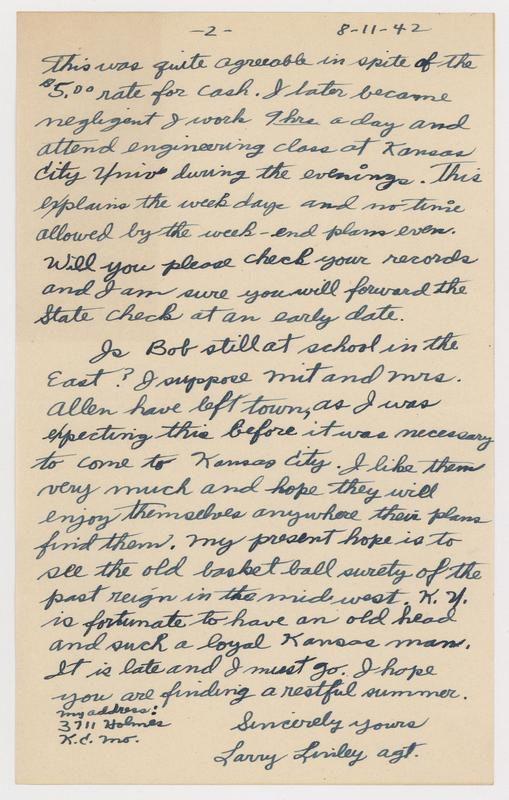 -2-
8-11-42
This was quite agreeable in spite of the
$5.00 rate for cash. I later became
negligent I work 9hrs a day and
attend engineering class at Kansas
City Univ. during the evenings. This
explains the week days and no time
allowed by the week-end plans even.
Will you please check your records
and I am sure you will forward the
State check at an early date.
Is Bob still at school in the
East? I suppose Mit and Mrs.
Allen have left town, as I was
expecting this before it was necessary
to come to Kansas City. I like them
very much and hope they will
enjoy themselves anywhere their plans
find them. My present hope is to
see the old basket ball surety of the
past reign in the mid west. K.U.
is fortunate to have an old head
and such a loyal Kansas man.
It is late and I must go. I hope
you are finding a restful summer.
Sincerely yours
Larry Linley agt.
My address:
3711 Holmes
K.C. Mo.